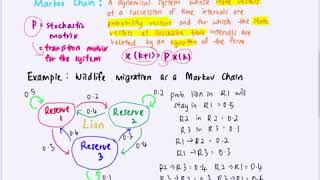 Markov Chain : A dynamical system whose state vectors
at a succession of time intervals are
probability vectors and for which the state
vectors at successive time intervals are
related by an equation of the form
P = stochastic
matrix
= transition matrix
for the system
x(k+1) = P x(k)
Example : Wildlife migration as a Markov Chain
0.5
0.2
0.2
Reserve
1
0.4
Lion
Reserve
2
Reserve
3
0.3
0.4
0.3
prob. lion in R1 will
stay in R1 = 0.5
R2 in R2 : 0.2
R3 in R3 : 0.1
R1 → R2 = 0.2
R1 → R3 = 0.3 R2 → R1 = 0.4